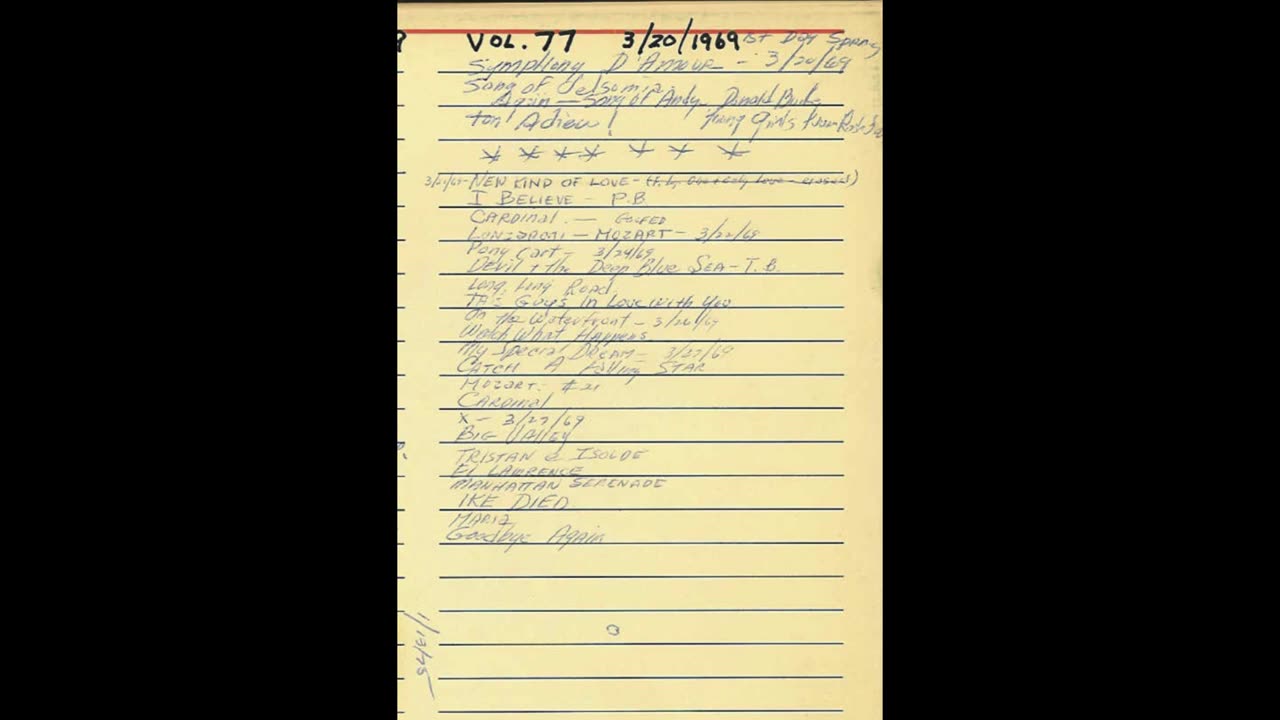 VOL. 77 3/20/1969 1st Day Spring
Symphony D'Amour - 3/20/69
Song of Gelsomina
Again - Song of Andy Donald
ton Adieu! Young Girls
* * * * * * *
NEW KIND OF LOVE - (
I BELIEVE - P.B.
CARDINAL - GOLFED
MOZART - 3/22/69
Pony Cart - 3/24/69
Devil + the Deep Blue SEA - T.B.
Long, Long Road
This Guys In Love With You
On the Waterfront - 3/26/69
Watch What Happens
My Special Dream - 3/27/69
CATCH A Falling STAR
MOZART - # 21
Cardinal
X - 3/27/69
BIG Valley
TRISTAN & ISOLDE
El LAWRENCE
MANHATTAN SERENADE
IKE DIED
MARIA
Goodbye Again